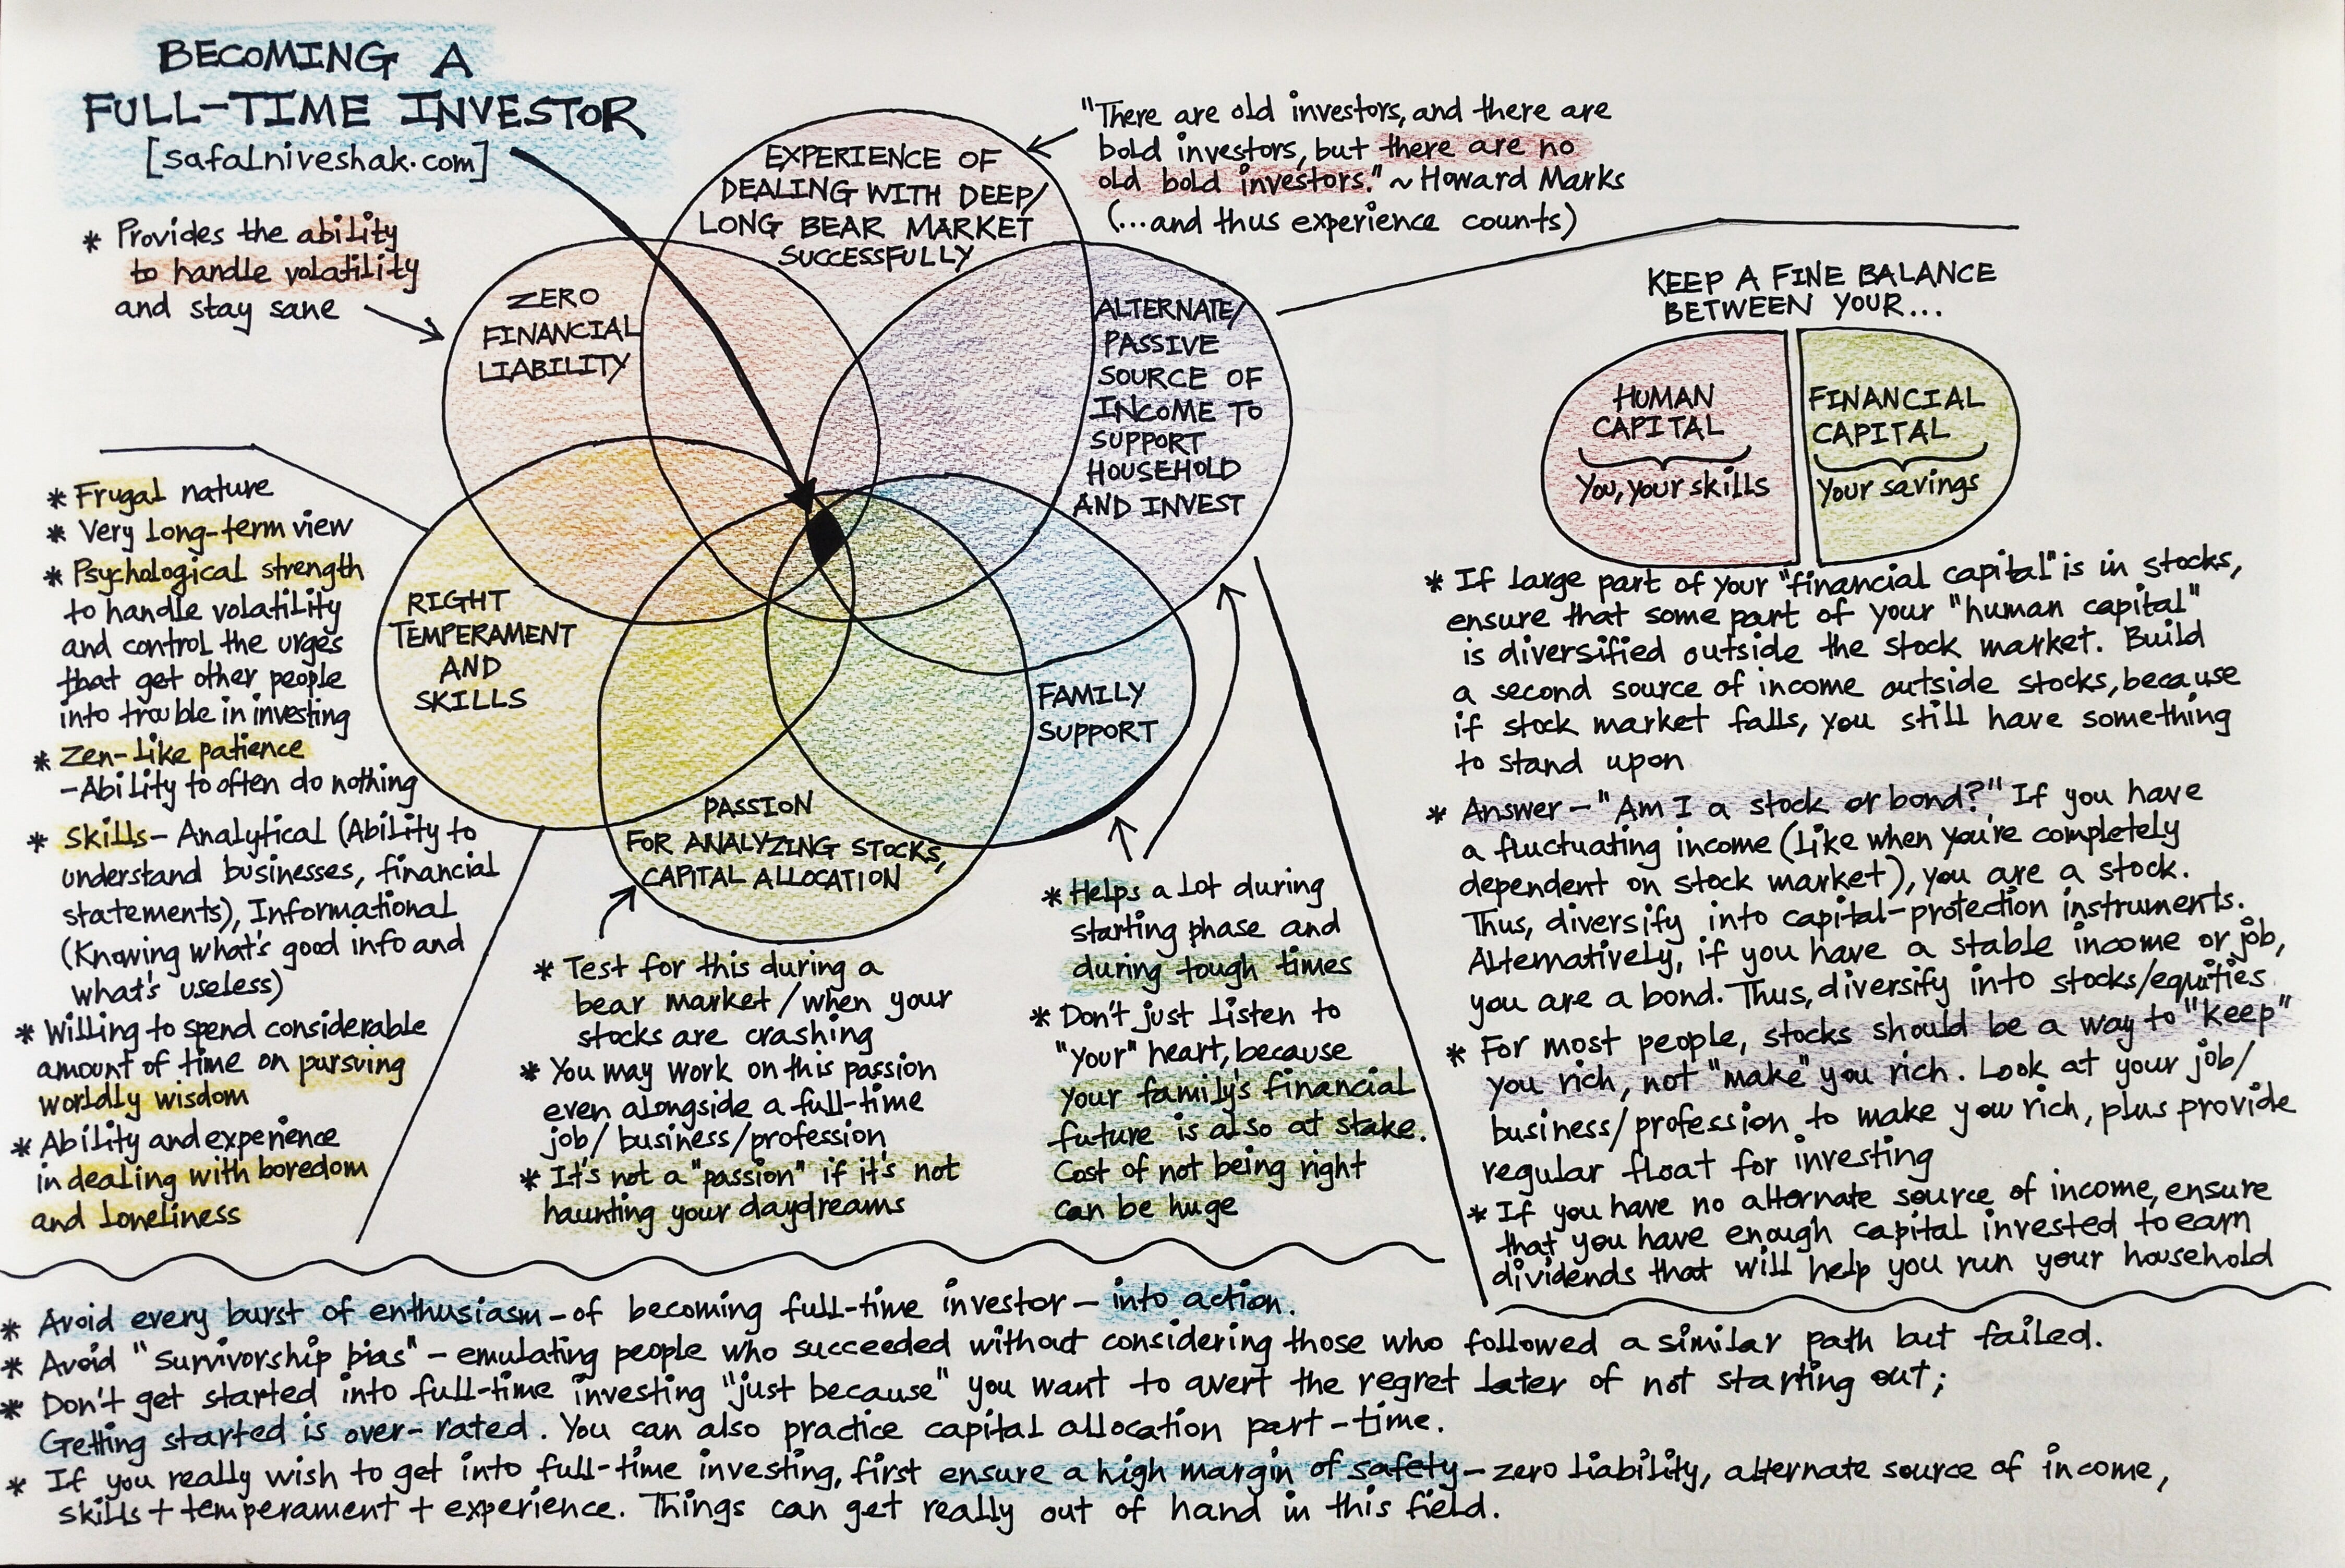 BECOMING A
FULL-TIME INVESTOR
[safalniveshak.com]
* Provides the ability
to handle volatility
and stay sane
EXPERIENCE OF
DEALING WITH DEEP/
LONG BEAR MARKET
SUCCESSFULLY
"There are old investors, and there are
bold investors, but there are no
old bold investors." ~ Howard Marks
(...and thus experience counts)
ZERO
FINANCIAL
LIABILITY
ALTERNATE/
PASSIVE
SOURCE OF
INCOME TO
SUPPORT
HOUSEHOLD
AND INVEST
RIGHT
TEMPERAMENT
AND
SKILLS
FAMILY
SUPPORT
PASSION
FOR ANALYZING STOCKS,
CAPITAL ALLOCATION
* Frugal nature
* Very long-term view
* Psychological strength
to handle volatility
and control the urges
that get other people
into trouble in investing
* Zen-like patience
-Ability to often do nothing
* Skills- Analytical (Ability to
understand businesses, financial
statements), Informational
(Knowing what's good info and
what's useless)
* Willing to spend considerable
amount of time on pursuing
worldly wisdom
* Ability and experience
in dealing with boredom
and loneliness
* Test for this during a
bear market/when your
stocks are crashing
* You may work on this passion
even alongside a full-time
job/business/profession
* It's not a "passion" if it's not
haunting your daydreams
* Helps a lot during
starting phase and
during tough times
* Don't just listen to
"your" heart, because
your family's financial
future is also at stake.
Cost of not being right
can be huge
KEEP A FINE BALANCE
BETWEEN YOUR...
HUMAN
CAPITAL
You, your skills
FINANCIAL
CAPITAL
Your savings
* If large part of your "financial capital" is in stocks,
ensure that some part of your "human capital"
is diversified outside the stock market. Build
a second source of income outside stocks, because
if stock market falls, you still have something
to stand upon
* Answer - "Am I a stock or bond?" If you have
a fluctuating income (like when you're completely
dependent on stock market), you are a stock.
Thus, diversify into capital-protection instruments.
Alternatively, if you have a stable income or job,
you are a bond. Thus, diversify into stocks/equities
* For most people, stocks should be a way to "keep"
you rich, not "make" you rich. Look at your job/
business/profession to make you rich, plus provide
regular float for investing
* If you have no alternate source of income, ensure
that you have enough capital invested to earn
dividends that will help you run your household
* Avoid every burst of enthusiasm - of becoming full-time investor - into action.
* Avoid "survivorship bias" - emulating people who succeeded without considering those who followed a similar path but failed.
* Don't get started into full-time investing "just because" you want to avert the regret later of not starting out;
Getting started is over-rated. You can also practice capital allocation part-time.
* If you really wish to get into full-time investing, first ensure a high margin of safety - zero liability, alternate source of income,
skills + temperament + experience. Things can get really out of hand in this field.